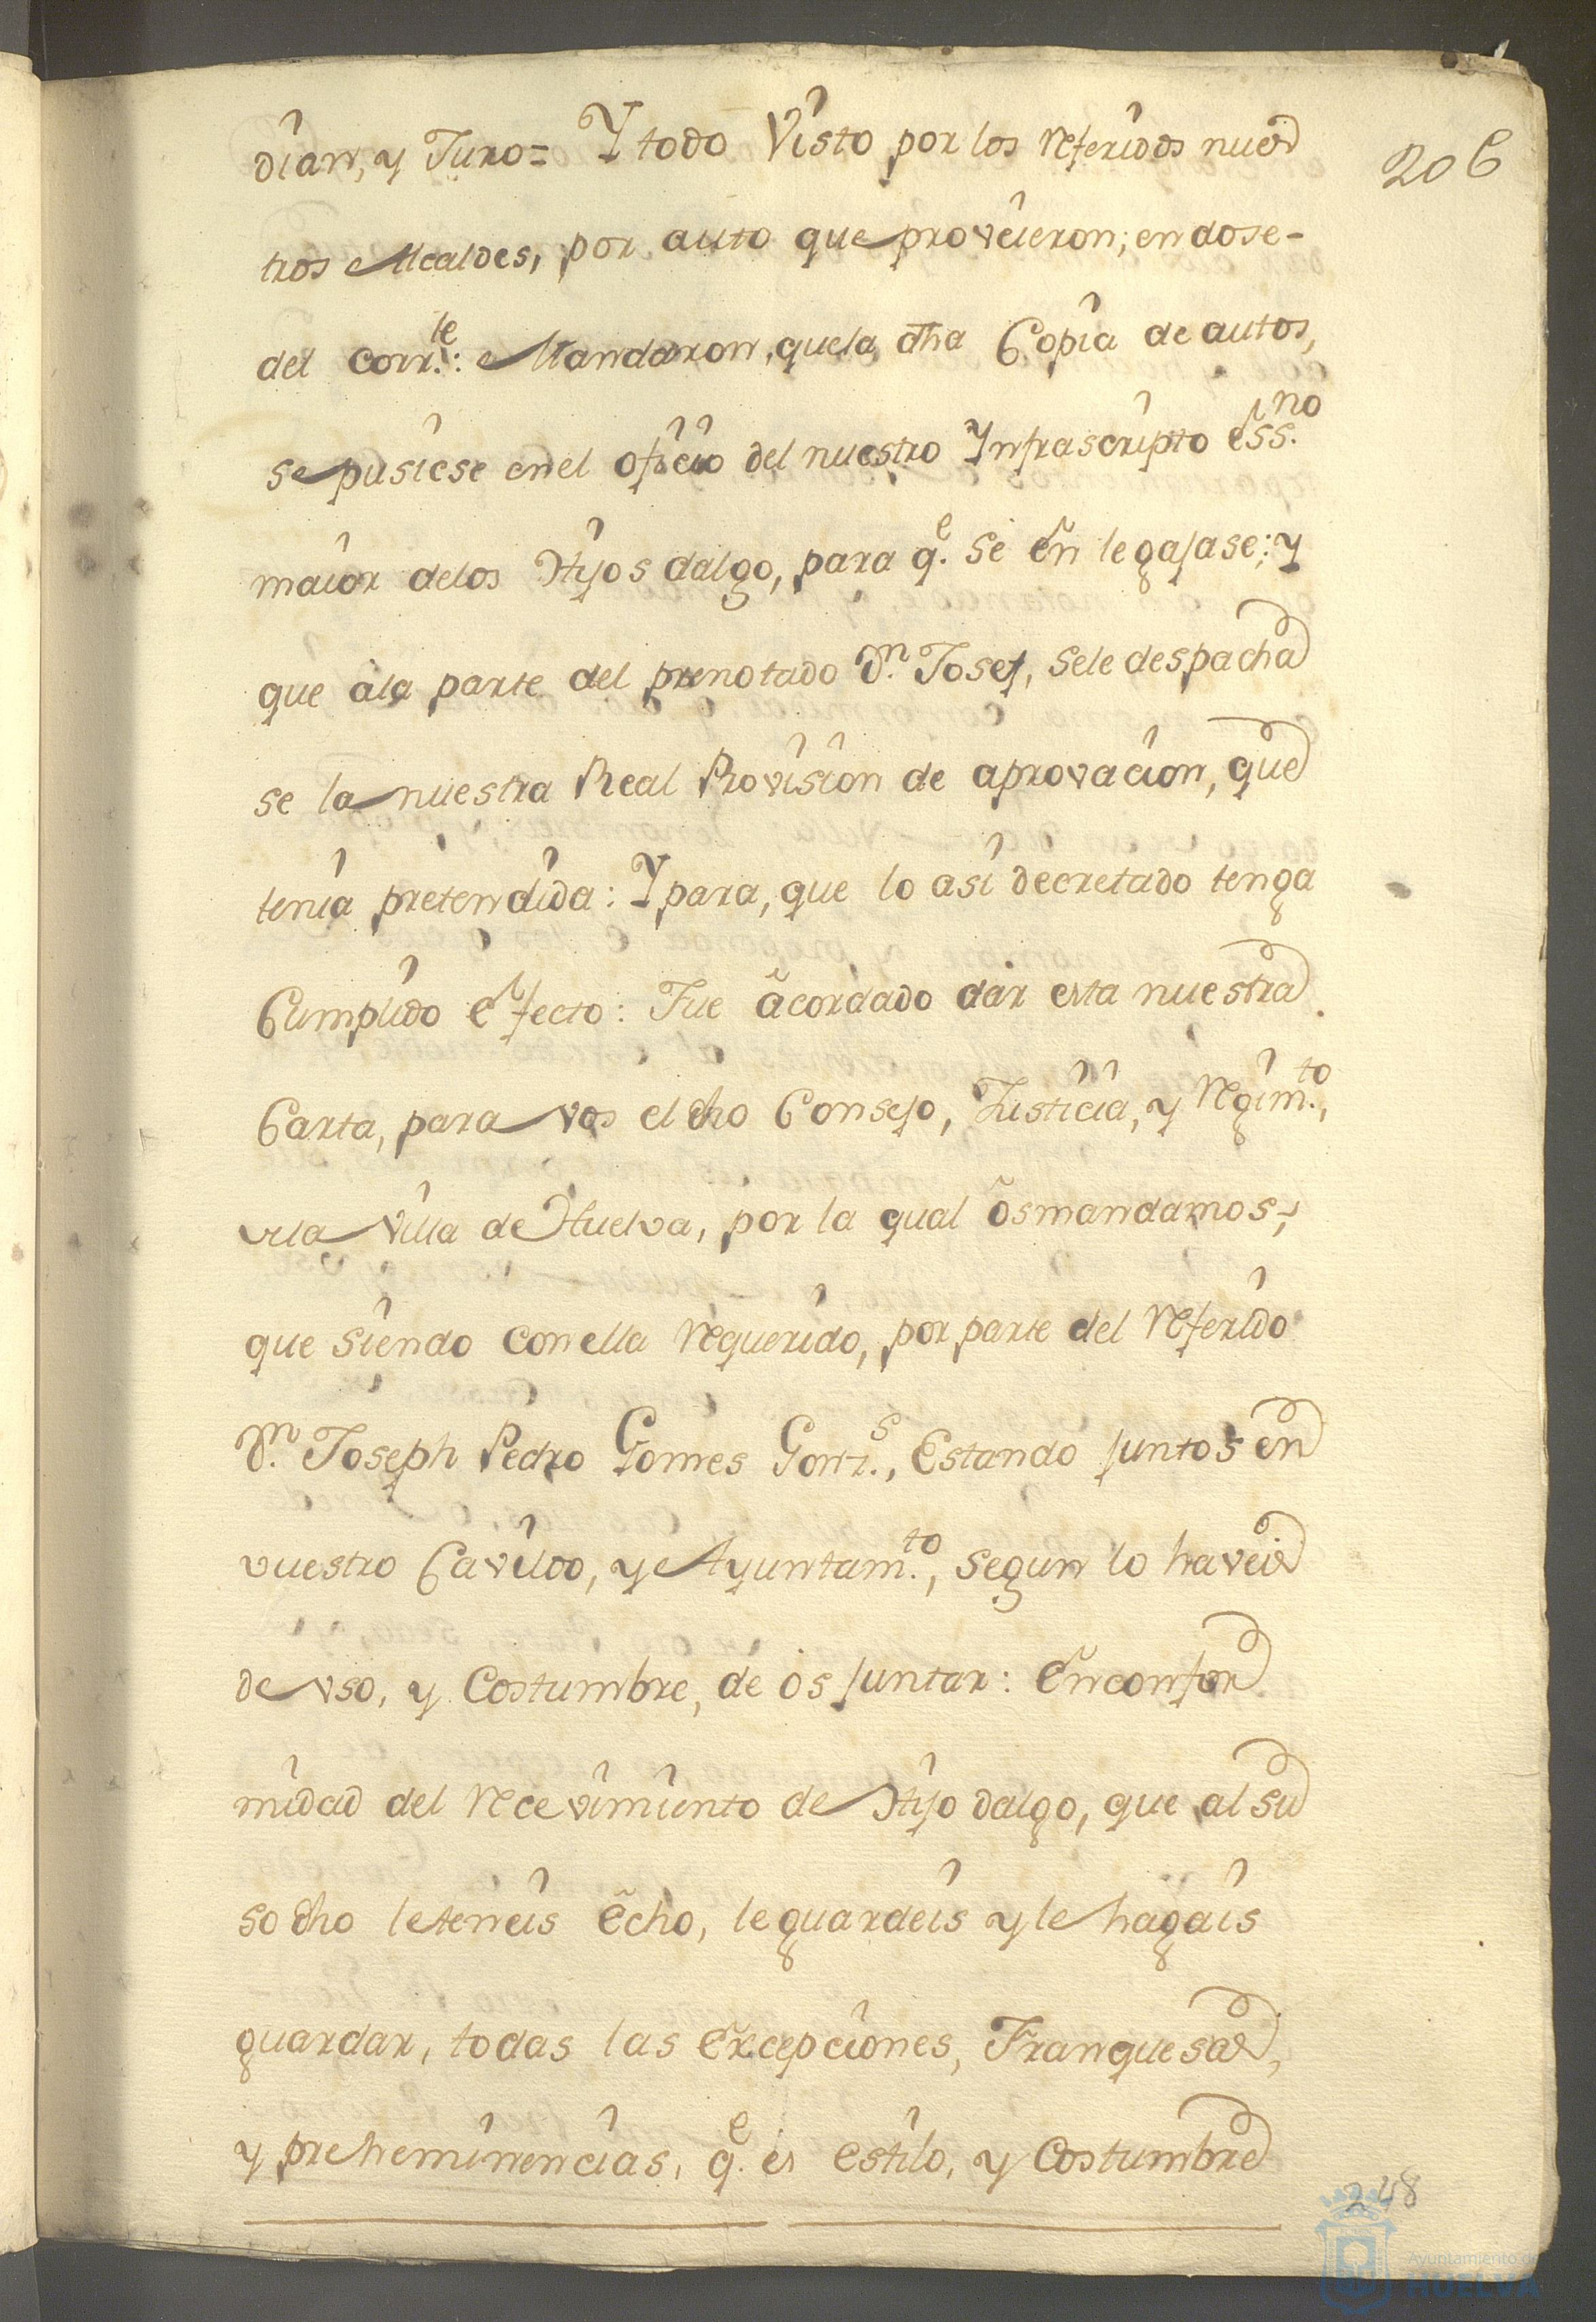 dian, y Juro= Y todo Visto por los referidos nues
206
tros Alcaldes, por auto que proveieron; en dose-
del corr.te: Mandaron, que la dha Copia de autos,
se pusiese en el oficio del nuestro Ynfrascripto ess.no
maior delos Hijos dalgo, para q.e se en legajase; y
que àla parte del prenotado D.n Josef, sele despacha
se la nuestra Real Provision de aprovacion, que
tenia pretendida: Y para, que lo asi decretado tenga
Cumplido efecto: Fue acordado dar esta nuestra
Carta, para vos el dho Consejo, Justicia, y Regim.to,
de la Villa de Huelva, por la qual os mandamos,
que siendo con ella requerido, por parte del referido
D.n Joseph Pedro Gomes Gonz.s, Estando juntos en
vuestro Cavildo, y Ayuntam.to, segun lo haveis
de vso, y Costumbre, de os juntar: En confor
midad del recevimiento de Hijo dalgo, que al su
so dho le teneis echo, le guardeis y le hagais
guardar, todas las Excepciones, Franquesas,
y preheminencias, q.e es estilo, y Costumbre
248
Ayuntamiento de
HUELVA